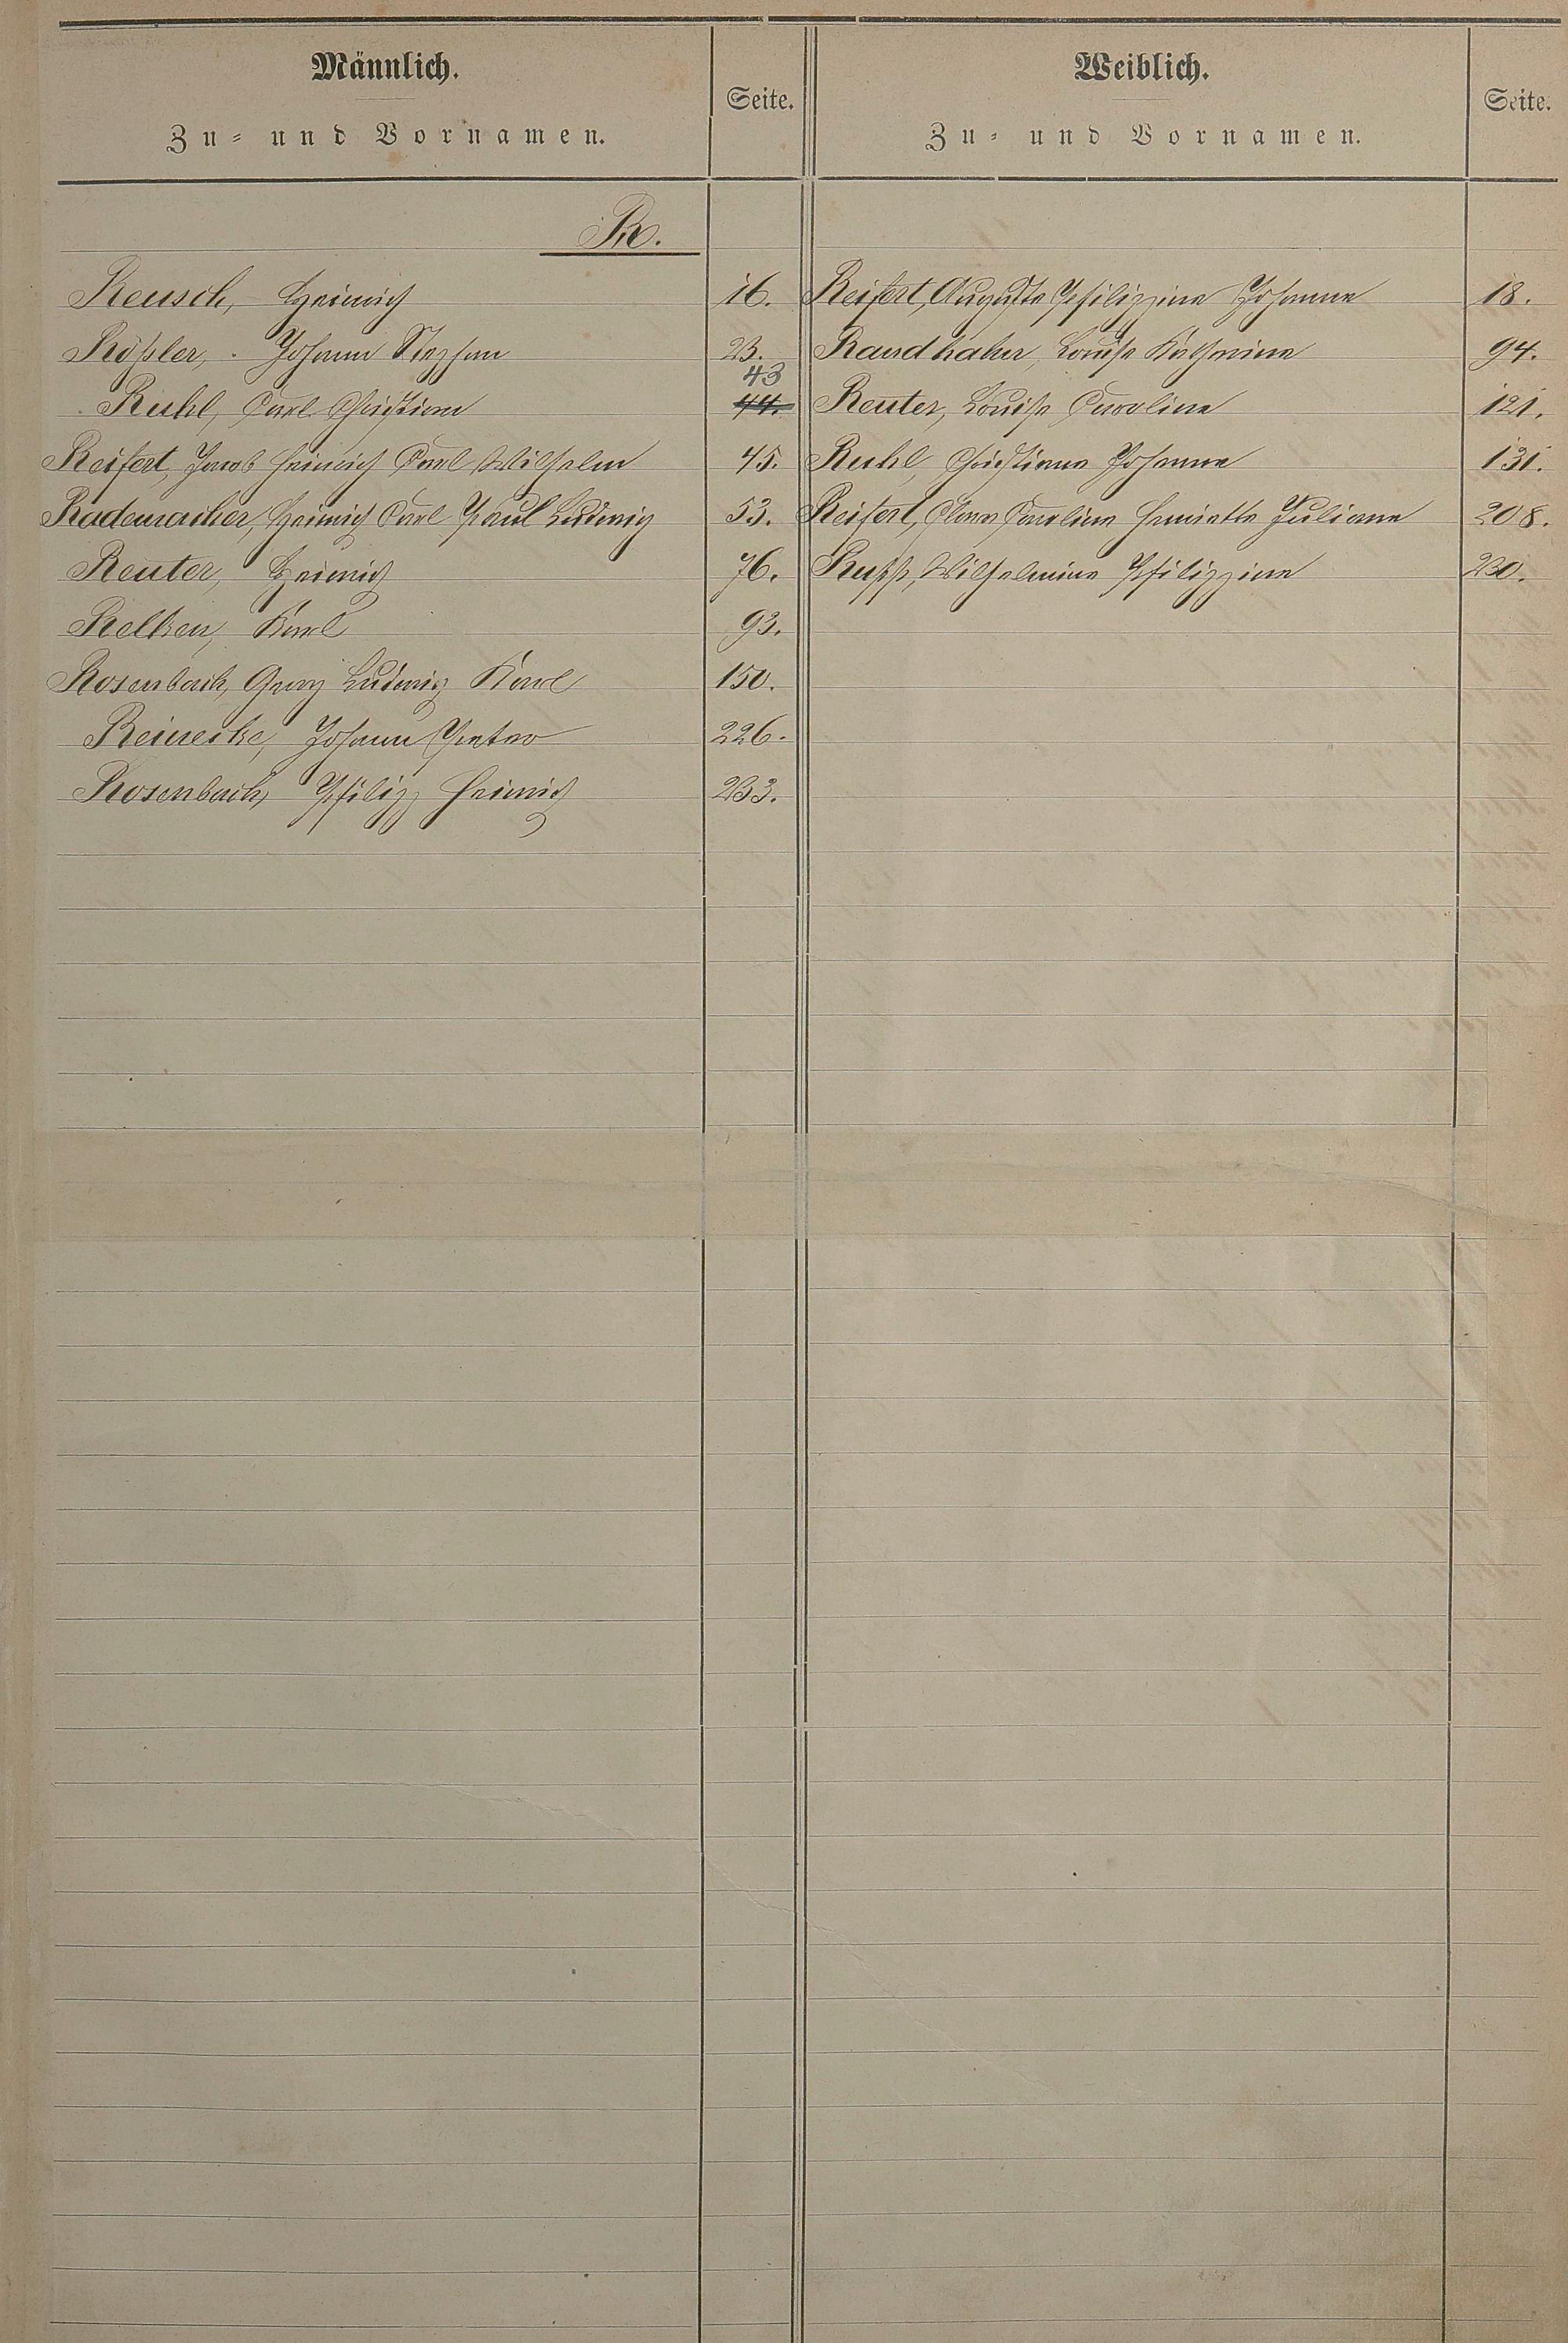 Männlich.
Zu- und Vornamen.
Seite.
R.
Reusch, Heinrich 16.
Rößler, Johann Stephan 23.
43
Ruhl, Carl Christian 44.
Reifert, Jacob Heinrich Carl Wilhelm 45.
Rademacher, Heinrich Carl Paul Ludwig 53.
Reuter, Heinrich 76.
Relken, Karl 93.
Rosenbach, Georg Ludwig Karl 150.
Reinecke, Johann Peter 226.
Rosenbach, Philipp Heinrich 233.
Weiblich.
Zu- und Vornamen.
Seite.
Reifert, Auguste Philippine Johanne 18.
Randhahn, Louise Katharine 94.
Reuter, Louise Caroline 121.
Ruhl, Christiane Johanne 131.
Reifert, Clara Caroline Henriette Juliane 208.
Wilhelmine Philippine 230.